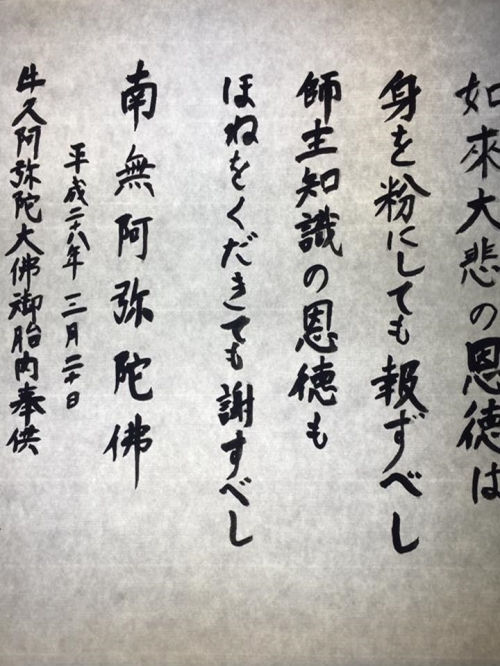 如來大悲の恩徳は
身を粉にしても報ずべし
師主知識の恩徳も
ほねをくだきても謝すべし
南無阿弥陀佛
平成二十八年 三月二十日
牛久阿弥陀大佛御胎内奉供